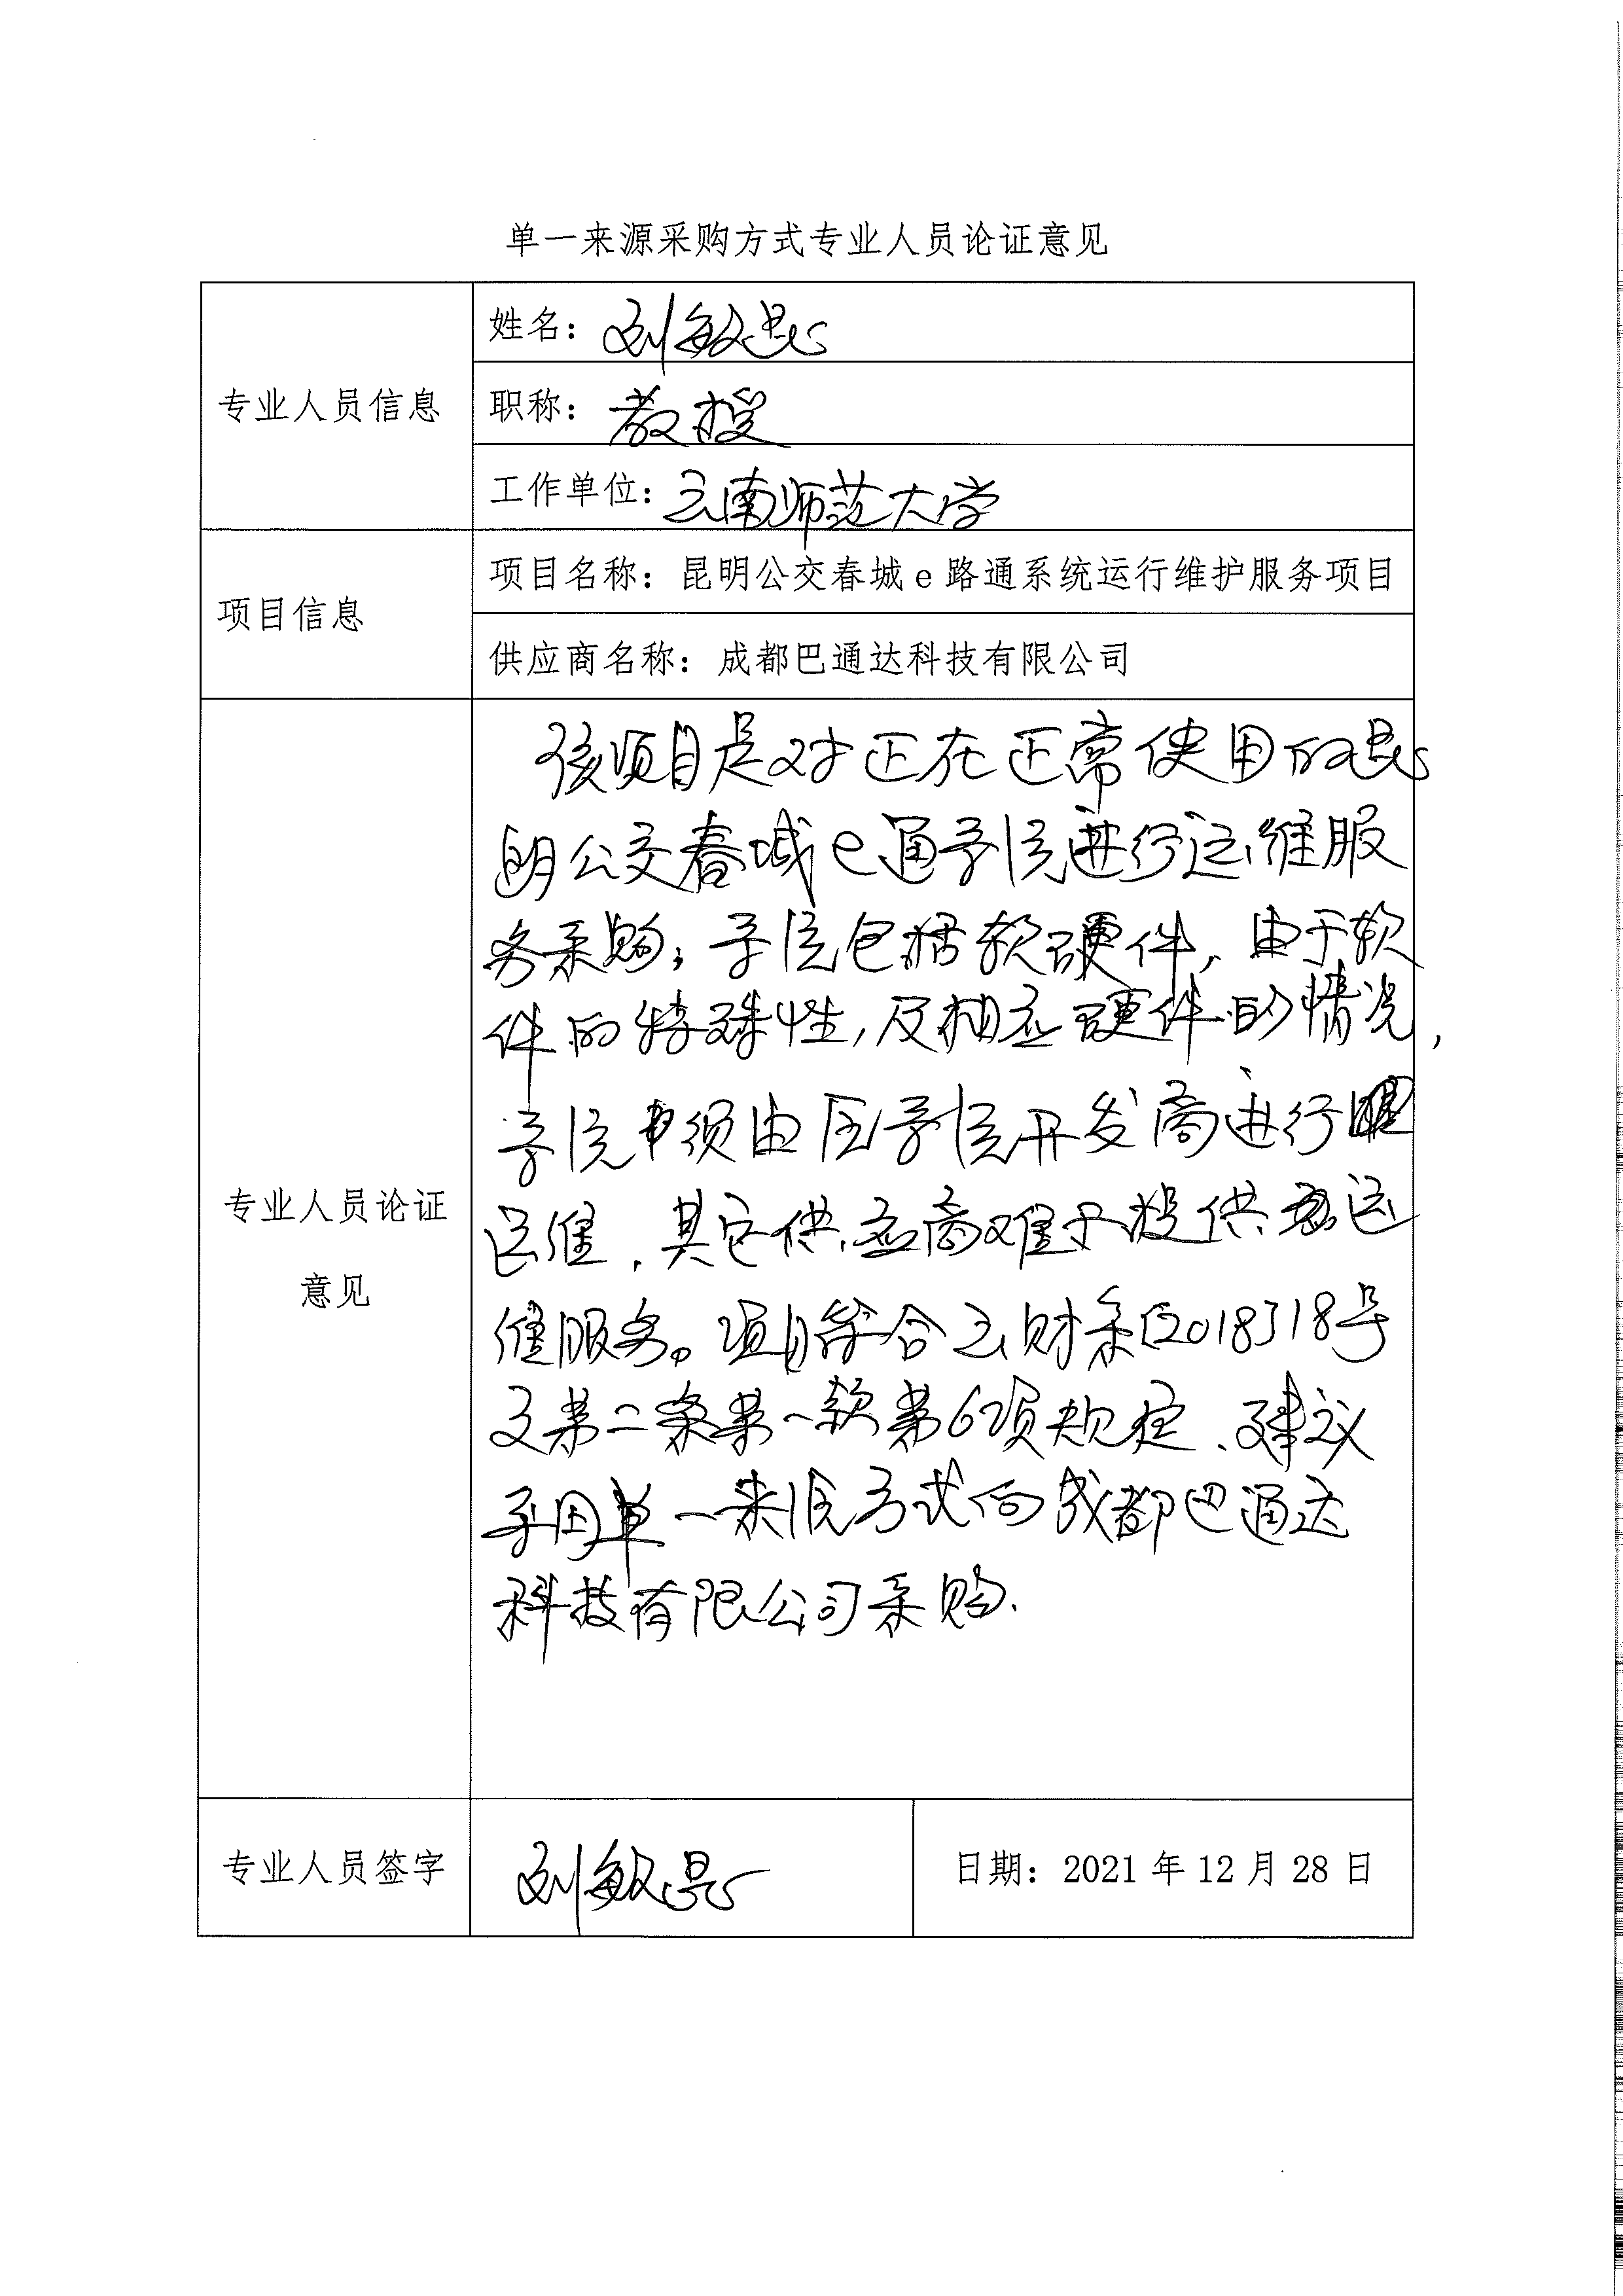 单一来源采购方式专业人员论证意见
专业人员信息
姓名：刘敏昆
职称：教授
工作单位：云南师范大学
项目信息
项目名称：昆明公交春城e路通系统运行维护服务项目
供应商名称：成都巴通达科技有限公司
专业人员论证
意见
该项目是对正在正常使用的昆
明公交春城e通系统进行运维服
务采购；系统包括软硬件，由于软
件的特殊性，及相应硬件的情况，
系统须由原系统开发商进行
运维，其它供应商难于提供运
维服务。项目符合云财采〔2018〕18号
文第二条第一款第6项规定、建议
采用单一来源方式向成都巴通达
科技有限公司采购.
专业人员签字
刘敏昆
日期：2021年12月28日